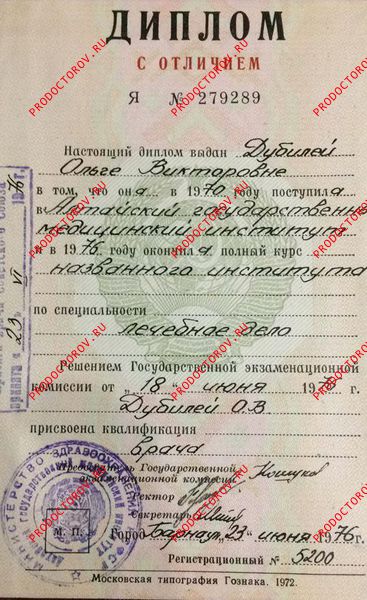 ДИПЛОМ
С ОТЛИЧИЕМ
Я № 279289
Настоящий диплом выдан Дубилей
Ольге Викторовне
в том, что она в 1970 году поступила
в Алтайский государственный
медицинский институт
и в 1976 году окончила полный курс
названного института
по специальности
лечебное дело
Решением Государственной экзаменационной
комиссии от „18“ июня 1976 г.
Дубилей О.В
присвоена квалификация
врача
Председатель Государственной
экзаменационной комиссии
Ректор
Секретарь
М. П.
Город Барнаул, 23 июня 1976 г.
Регистрационный № 5200
Московская типография Гознака. 1972.
принята „23 VI
1976г.
МИНИСТЕРСТВО ЗДРАВООХРАНЕНИЯ РСФСР
PRODOCTOROV.RU